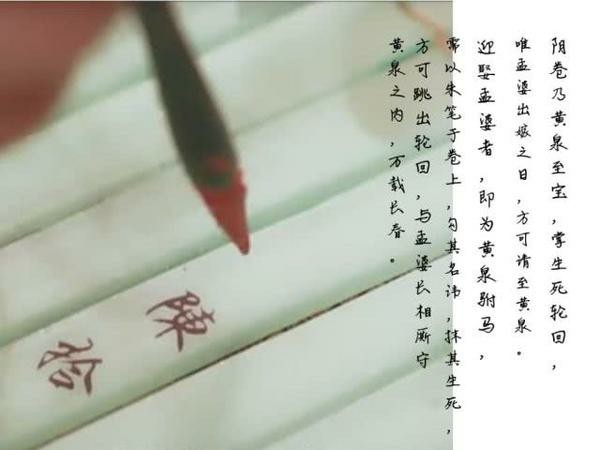 阴卷乃黄泉至宝，掌生死轮回，
唯孟婆出嫁之日，方可请至黄泉。
迎娶孟婆者，即为黄泉驸马，
需以朱笔于卷上，勾其名讳，抹其生死，
方可跳出轮回，与孟婆长相厮守
黄泉之内，万载长春。
陳拾